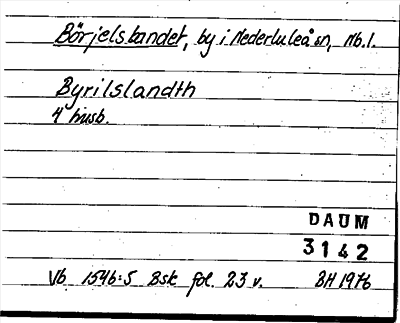 Börjelslandet, by i Nederluleå sn, Nb.l.
Byrilslandth
4 husb.
DAUM
3142
Vb 1546:5 Bsk fol. 23 v. BH 1976